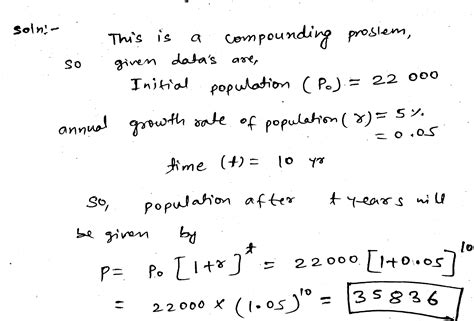 soln:- This is a compounding problem,
so given data's are,
Initial population (P₀) = 22 000
annual growth rate of population (r) = 5 %.
= 0.05
time (t) = 10 yr
So, population after t years will
be given by
P = P₀ [1+r]^t = 22000 [1+0.05]^10
= 22000 × (1.05)^10 = 35836